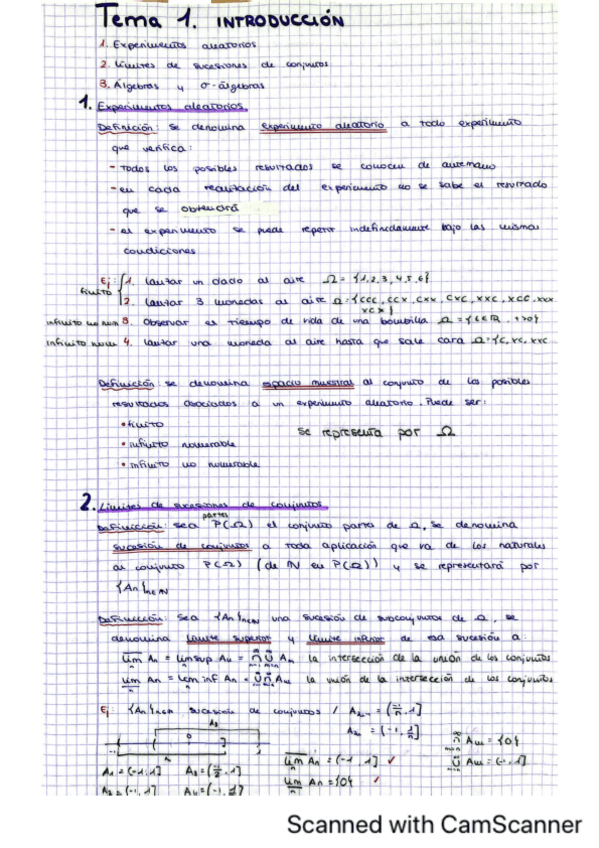 Tema 1. INTRODUCCIÓN
1. Experimentos aleatorios
2. Límites de sucesiones de conjuntos
3. Álgebras y σ-álgebras
1. Experimentos aleatorios.
Definición: se denomina experimento aleatorio a todo experimento
que verifica:
- todos los posibles resultados se conocen de antemano
- en cada realización del experimento no se sabe el resultado
que se obtendrá
- el experimento se puede repetir indefinidamente bajo las mismas
condiciones
Ej: 1. Lanzar un dado al aire Ω = {1,2,3,4,5,6}
finito
2. Lanzar 3 monedas al aire Ω = {CCC, CCX, CXX, CXC, XXC, XCC, XXX,
XCX}
infinito no num 3. Observar el tiempo de vida de una bombilla Ω = {t∈ℝ, t>0}
infinito num 4. Lanzar una moneda al aire hasta que sale cara Ω={C, XC, XXC
Definición: se denomina espacio muestral al conjunto de los posibles
resultados asociados a un experimento aleatorio. Puede ser:
• finito
se representa por Ω
• infinito numerable
• infinito no numerable
2. Límites de sucesiones de conjuntos
partes
Definición: sea P(Ω) el conjunto parte de Ω, se denomina
sucesión de conjuntos a toda aplicación que va de los naturales
al conjunto P(Ω) (de ℕ en P(Ω)) y se representará por
{An}n∈ℕ
Definición: Sea {An}n∈ℕ una sucesión de subconjuntos de Ω, se
denomina límite superior y límite inferior de esa sucesión a:
lim An = lim sup An = ∩ ∪ Am la intersección de la unión de los conjuntos
lim An = lim inf An = ∪ ∩ Am la unión de la intersección de los conjuntos
Ej: {An}n∈ℕ sucesión de conjuntos /
A2n = (-1, 1/n]
A3
0
∩ Am = {0}
∪ Am = (-1,1]
lim An = (-1,1] ✓
A1 = (-1,1]
lim An = {0} ✓
Scanned with CamScanner